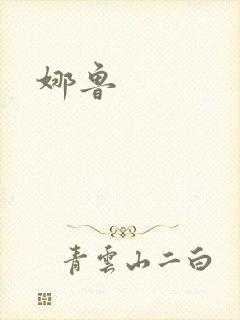 娜鲁
青雲山二白